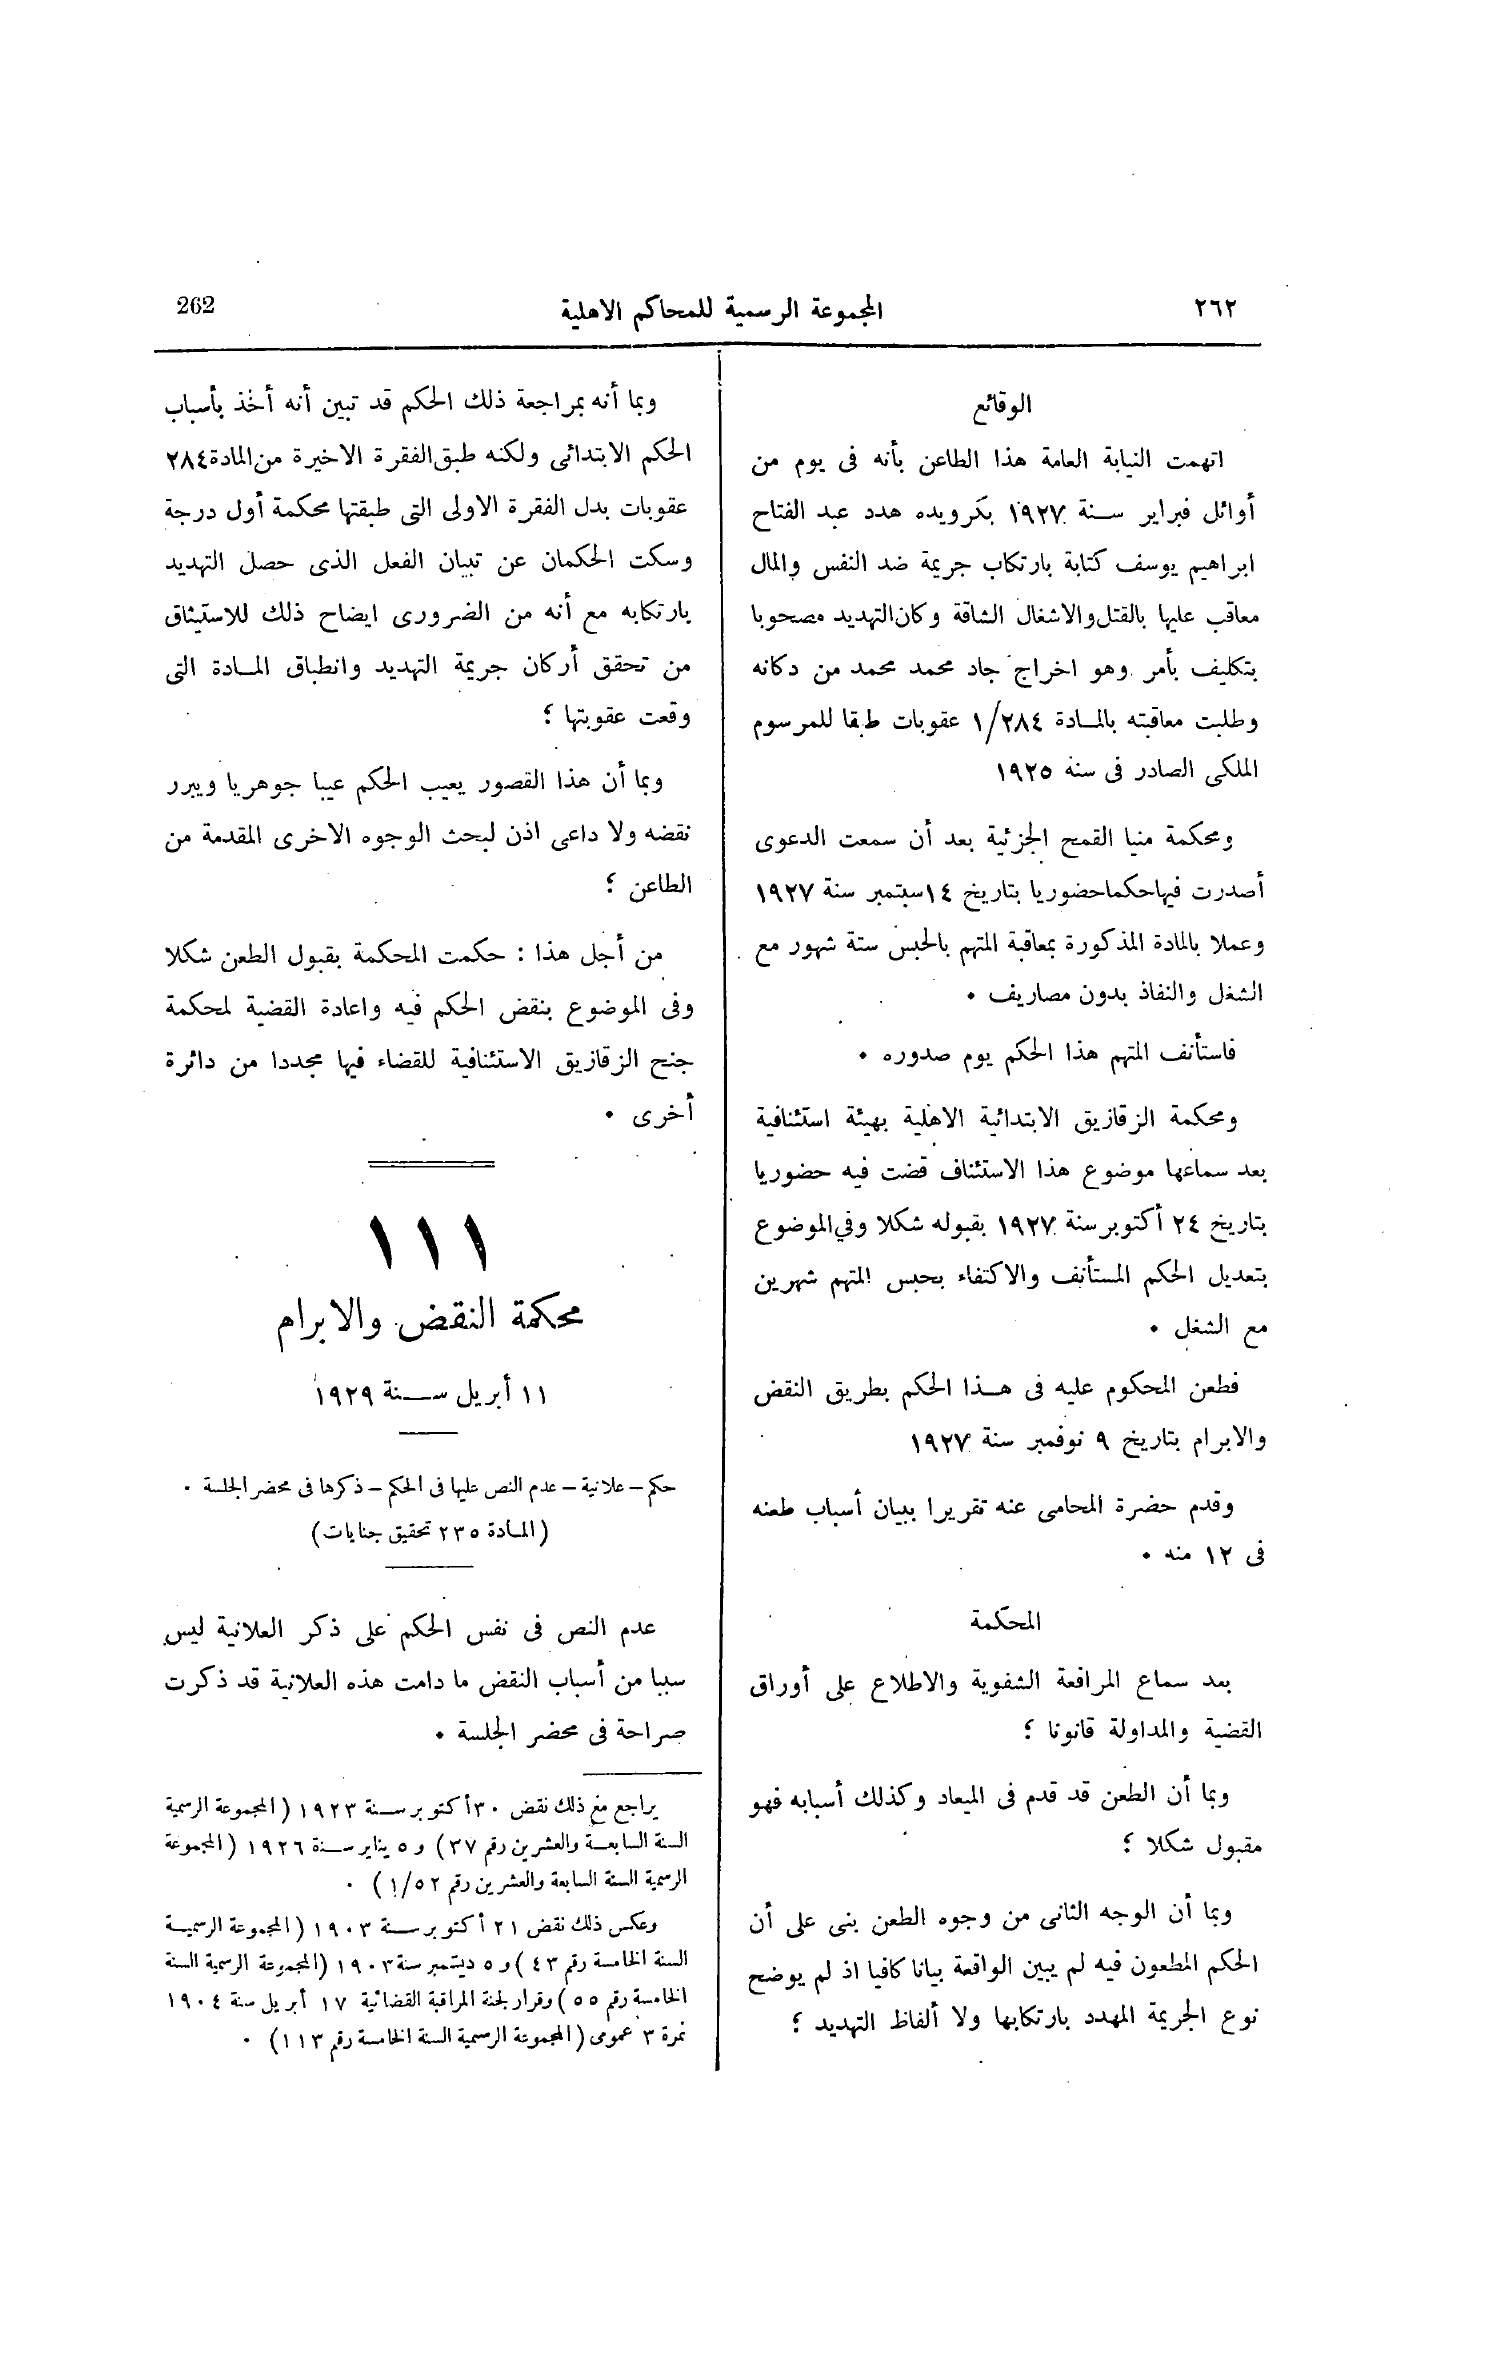 ٢٦٢
المجموعة الرسمية للمحاكم الاهلية
262
الوقائع
اتهمت النيابة العامة هذا الطاعن بأنه فى يوم من
أوائل فبراير سنة ١٩٢٧ بكرويده هدد عبد الفتاح
ابراهيم يوسف كتابة بارتكاب جريمة ضد النفس والمال
معاقب عليها بالقتل والاشغال الشاقة وكان التهديد مصحوبا
بتكليف بأمر وهو اخراج جاد محمد محمد من دكانه
وطلبت معاقبته بالمادة ١/٢٨٤ عقوبات طبقا للمرسوم
الملكى الصادر فى سنة ١٩٢٥
ومحكمة منيا القمح الجزئية بعد أن سمعت الدعوى
أصدرت فيها حكما حضوريا بتاريخ ١٤ سبتمبر سنة ١٩٢٧
وعملا بالمادة المذكورة بمعاقبة المتهم بالحبس ستة شهور مع
الشغل والنفاذ بدون مصاريف .
فاستأنف المتهم هذا الحكم يوم صدوره .
ومحكمة الزقازيق الابتدائية الاهلية بهيئة استئنافية
بعد سماعها موضوع هذا الاستئناف قضت فيه حضوريا
بتاريخ ٢٤ أكتوبر سنة ١٩٢٧ بقبوله شكلا وفى الموضوع
بتعديل الحكم المستأنف والاكتفاء بحبس المتهم شهرين
مع الشغل .
فطعن المحكوم عليه فى هذا الحكم بطريق النقض
والابرام بتاريخ ٩ نوفمبر سنة ١٩٢٧
وقدم حضرة المحامى عنه تقريرا ببيان أسباب طعنه
فى ١٢ منه .
المحكمة
بعد سماع المرافعة الشفوية والاطلاع على أوراق
القضية والمداولة قانونا ؛
وبما أن الطعن قد قدم فى الميعاد وكذلك أسبابه فهو
مقبول شكلا ؛
وبما أن الوجه الثانى من وجوه الطعن بنى على أن
الحكم المطعون فيه لم يبين الواقعة بيانا كافيا اذ لم يوضح
نوع الجريمة المهدد بارتكابها ولا ألفاظ التهديد ؛
وبما أنه بمراجعة ذلك الحكم قد تبين أنه أخذ بأسباب
الحكم الابتدائى ولكنه طبق الفقرة الاخيرة من المادة ٢٨٤
عقوبات بدل الفقرة الاولى التى طبقتها محكمة أول درجة
وسكت الحكمان عن تبيان الفعل الذى حصل التهديد
بارتكابه مع أنه من الضرورى ايضاح ذلك للاستيثاق
من تحقق أركان جريمة التهديد وانطباق المادة التى
وقعت عقوبتها ؛
وبما أن هذا القصور يعيب الحكم عيبا جوهريا ويبرر
نقضه ولا داعى اذن لبحث الوجوه الاخرى المقدمة من
الطاعن ؛
من أجل هذا : حكمت المحكمة بقبول الطعن شكلا
وفى الموضوع بنقض الحكم فيه واعادة القضية لمحكمة
جنح الزقازيق الاستئنافية للقضاء فيها مجددا من دائرة
أخرى .
١١١
محكمة النقض والابرام
١١ أبريل سنة ١٩٢٩
حكم – علانية – عدم النص عليها فى الحكم – ذكرها فى محضر الجلسة .
(المادة ٢٣٥ تحقيق جنايات)
عدم النص فى نفس الحكم على ذكر العلانية ليس
سببا من أسباب النقض ما دامت هذه العلانية قد ذكرت
صراحة فى محضر الجلسة .
يراجع مع ذلك نقض ٣٠ أكتوبر سنة ١٩٢٣ (المجموعة الرسمية
السنة السابعة والعشرين رقم ٣٧) و ٥ يناير سنة ١٩٢٦ (المجموعة
الرسمية السنة السابعة والعشرين رقم ١/٥٢) .
وعكس ذلك نقض ٢١ أكتوبر سنة ١٩٠٣ (المجموعة الرسمية
السنة الخامسة رقم ٤٣) و ٥ ديتمبر سنة ١٩٠٣ (المجموعة الرسمية السنة
الخامسة رقم ٥٥) وقرار لجنة المراقبة القضائية ١٧ أبريل سنة ١٩٠٤
نمرة ٣ عمومى (المجموعة الرسمية السنة الخامسة رقم ١١٣) .